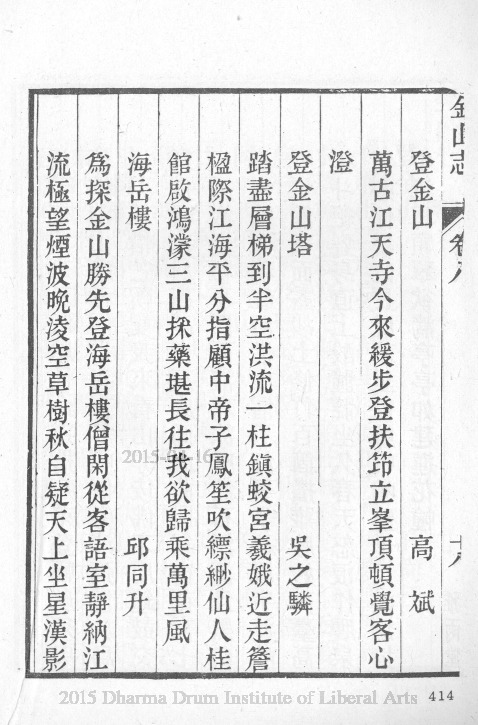 金山志 卷八 十八
登金山 高斌
萬古江天寺今來緩步登扶笻立峯頂頓覺客心
澄
登金山塔 吳之驎
踏盡層梯到半空洪流一柱鎮蛟宮羲娥近走簷
楹際江海平分指顧中帝子鳳笙吹縹緲仙人桂
館啟鴻濛三山採藥堪長往我欲歸乘萬里風
海岳樓 邱同升
為探金山勝先登海岳樓僧閑從客語室靜納江
流極望煙波晚淩空草樹秋自疑天上坐星漢影
2015-04-16
2015 Dharma Drum Institute of Liberal Arts
414